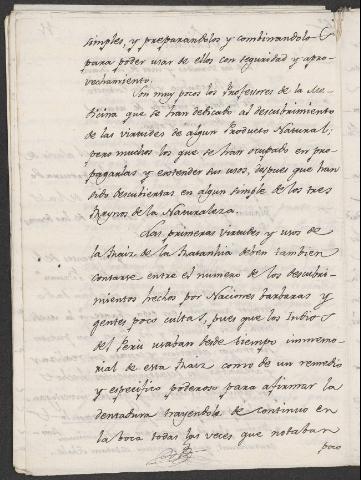 simples, y preparandolos y combinandolos
para poder usar de ellos con seguridad y apro-
vechamiento.
Son muy pocos los Profesores de la Me-
dicina que se han dedicado al descubrimiento
de las virtudes de algun Producto Natural;
pero muchos los que se han ocupado en pro-
pagarlas y extender sus usos, despues que han
sido descubiertas en algun simple de los tres
Reynos de la Naturaleza.
Las primeras virtudes y usos de
la Raiz de la Ratanhia deben tambien
contarse entre el numero de los descubri-
mientos hechos por Naciones barbaras y
gentes poco cultas, pues que los Indios
del Perú usaban desde tiempo inmemo-
rial de esta Raiz como de un remedio
y especifico poderoso para afirmar la
dentadura trayendola de continuo en
la boca todas las veces que notaban
poco